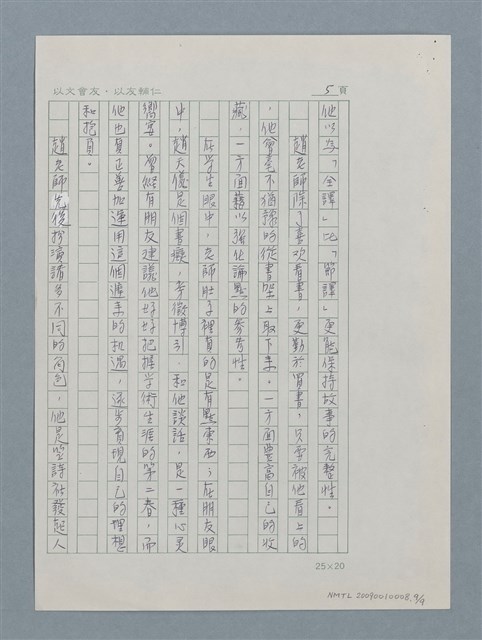 以文會友・以友輔仁
5頁
他以為「全譯」比「節譯」更能保持故事的完整性。
趙老師除了喜歡看書,更勤於買書,只要被他看上的
,他會毫不猶豫的從書架上取下來。一方面豐富自己的收
藏,一方面藉以強化論點的參考性。
在學生眼中,老師肚子裡真的是有點東西;在朋友眼
中,趙天儀是個書癡,旁徵博引,和他談話,是一種心靈
饗宴。曾經有朋友建議他好好把握學術生涯的第二春,而
他也真正善加運用這個遲來的机遇,逐步實現自己的理想
和抱負。
趙老師先後扮演諸多不同的角色,他是笠詩社發起人
25×20
NMTL 20090010008.9/9